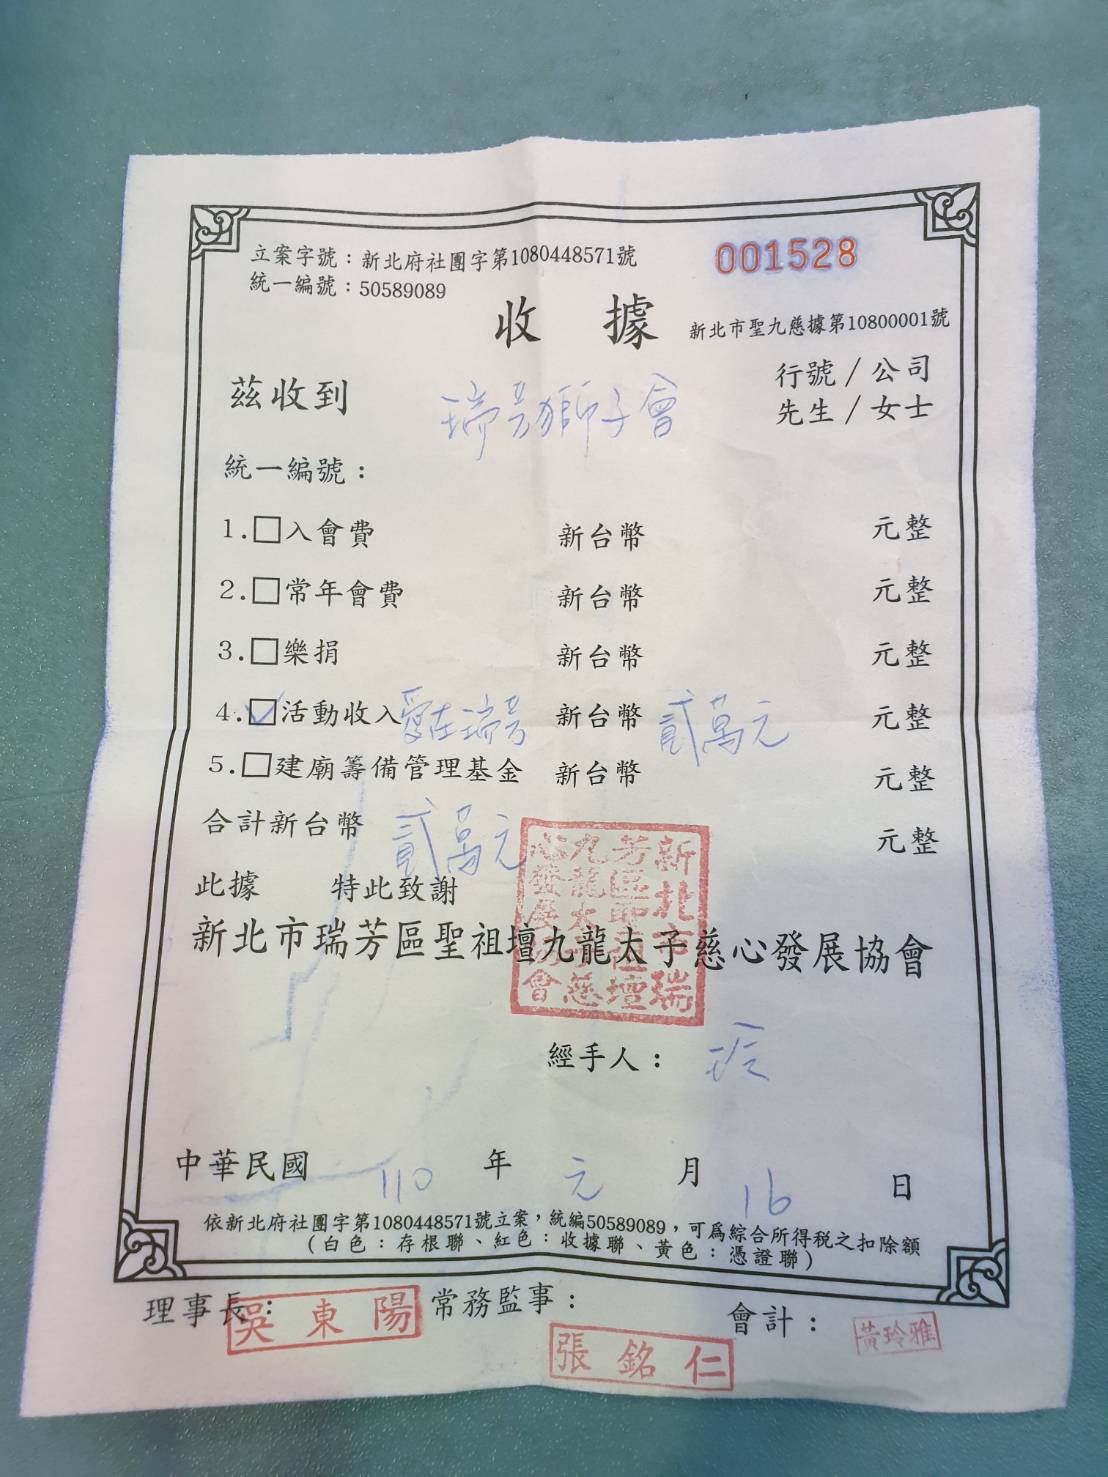 立案字號：新北府社團字第1080448571號
001528
統一編號：50589089
收據
新北市聖九慈據第10800001號
茲收到 瑞芳獅子會 行號／公司
先生／女士
統一編號：
1.□入會費 新台幣 元整
2.□常年會費 新台幣 元整
3.□樂捐 新台幣 元整
4.☑活動收入 愛在瑞芳 新台幣 貳萬元 元整
5.□建廟籌備管理基金 新台幣 元整
合計新台幣 貳萬元 元整
此據 特此致謝
新北市瑞芳區聖祖壇九龍太子慈心發展協會
新北市瑞芳區聖祖壇九龍太子慈心發展協會
經手人：玲
中華民國 110 年 元 月 16 日
依新北府社團字第1080448571號立案，統編50589089，可為綜合所得稅之扣除額
（白色：存根聯、紅色：收據聯、黃色：憑證聯）
理事長：吳東陽 常務監事：張銘仁 會計：黃玲雅